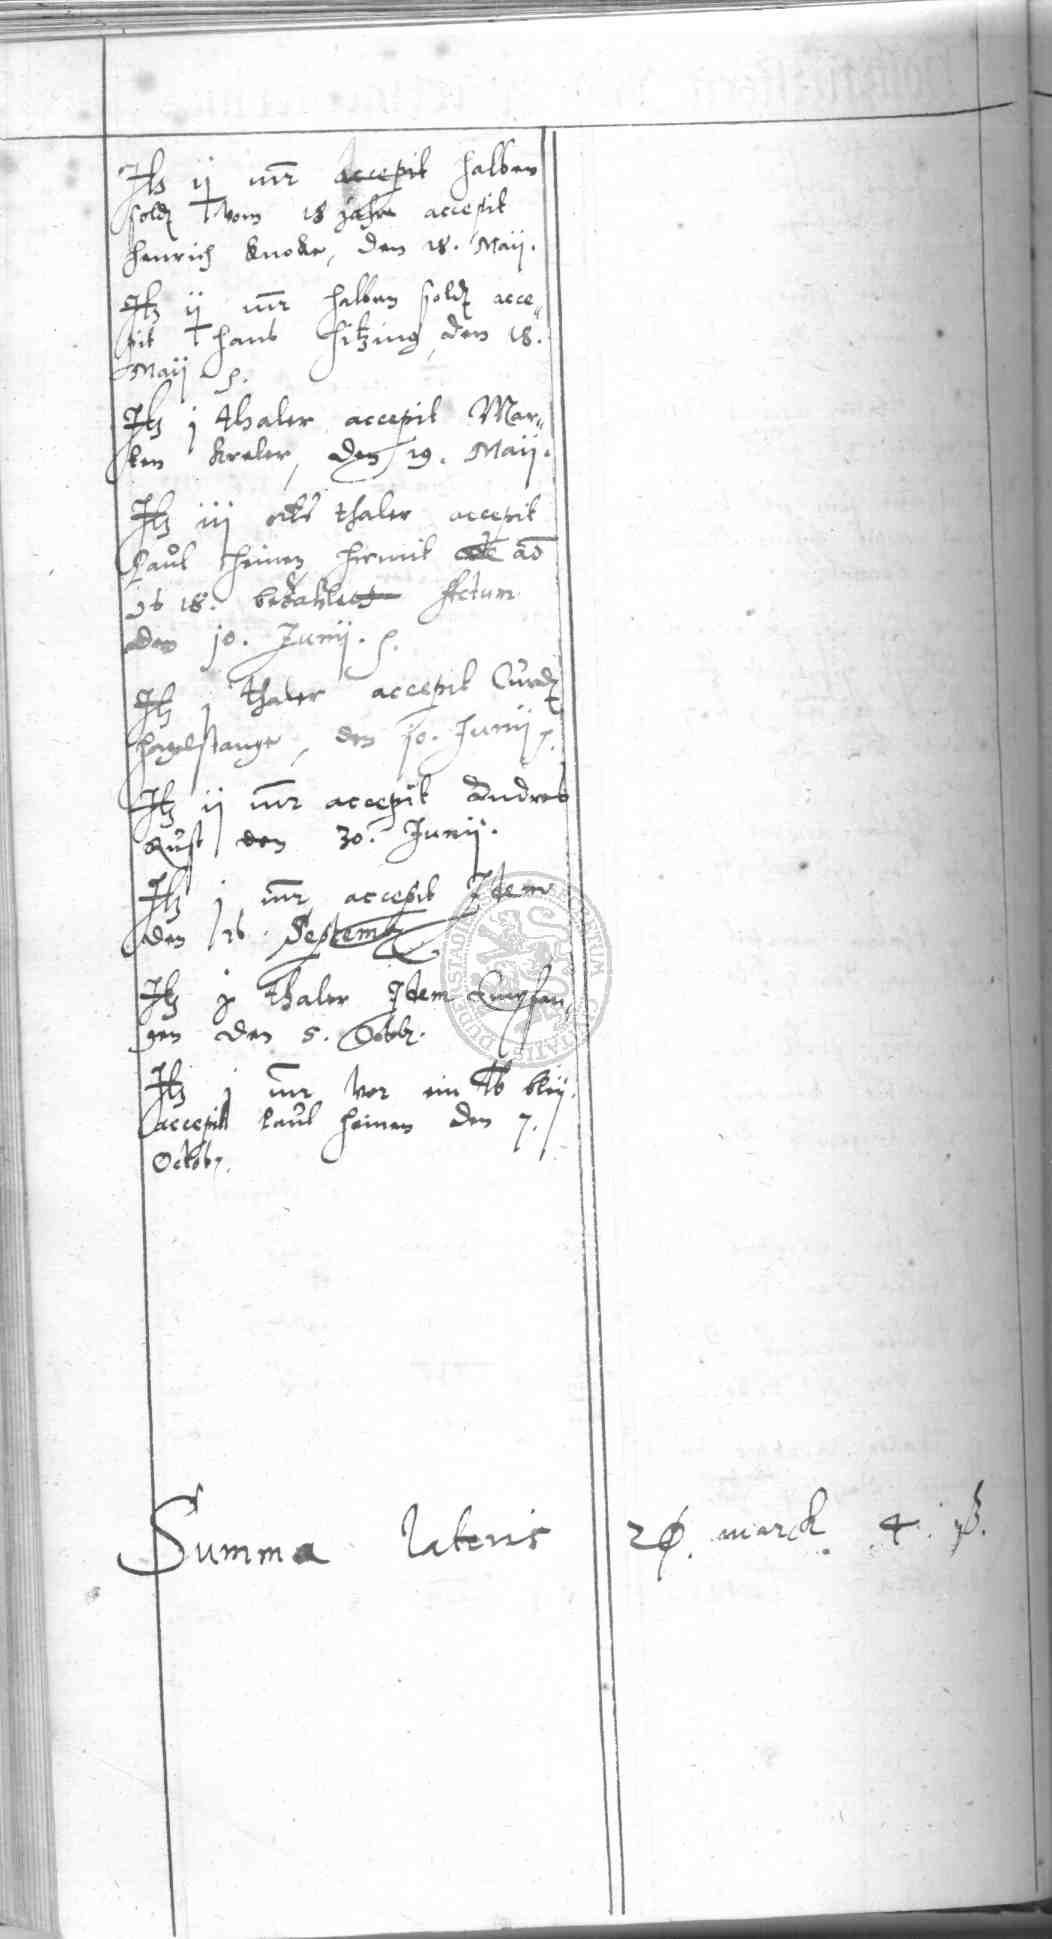 Itz ij mr accepit halben
soldt vom 18 jahr accepit
Henrich Knoke, den 18. Maij.
Itz ij mr halben soldt acce„
pit Hans Hitzing, den 18.
Maij p.
Itz j thaler accepit Mar„
ten Kreler, den 19. Maij.
Itz iij orts thaler accepit
Paul Heinen hirmit ad
96 18. bezahlet Actum
den 10. Junij. p.
Itz j thaler accepit Curdt
Hagelstange, den 10. Junij p.
Itz ij mr accepit Andres
Rust den 30. Junij.
Itz j mr accepit Idem
den 26. Septemb
Itz j thaler Idem Empfan„
gen den 5. Octob.
Itz j mr vor ein lb bley.
accepit Paul Heinen den 7.
Octob.
Summa lateris 26. marck 4. ß.